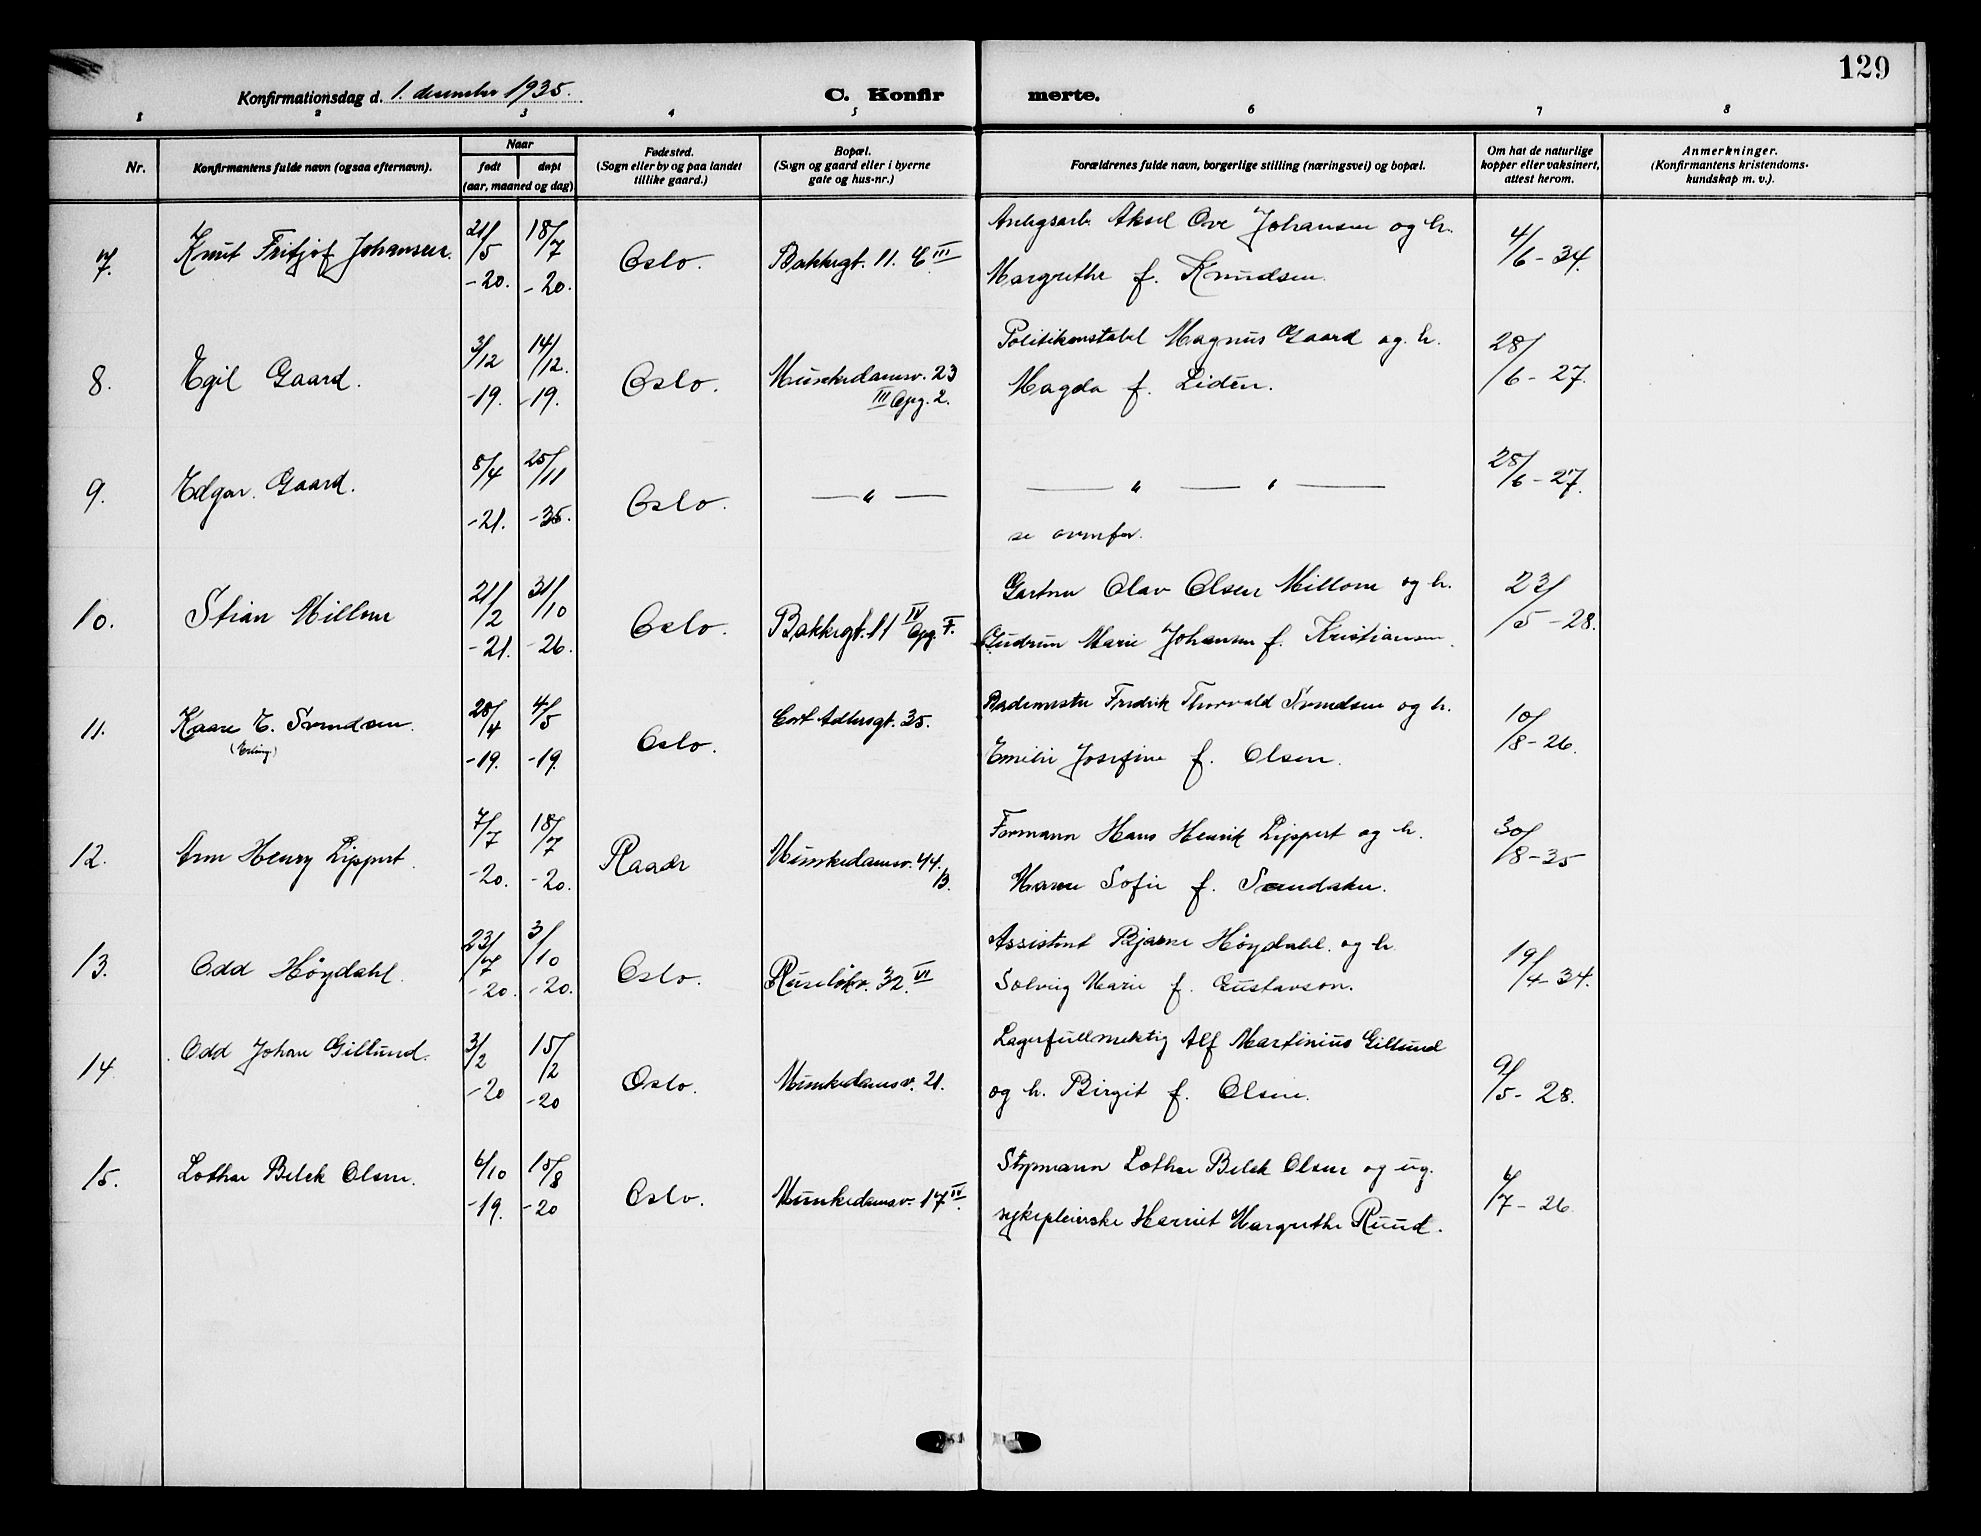 129
Konfirmationsdag d. 1. desember 1935.
C. Konfir merte.
1 2 3 4 5 6 7 8
Nr.
Konfirmantens fulde navn (ogsaa efternavn).
Naar
født døpt
(aar, maaned og dag)
Fødested.
(Sogn eller by og paa landet
tillike gaard.)
Bopæl.
(Sogn og gaard eller i byerne
gate og hus-nr.)
Forældrenes fulde navn, borgerlige stilling (næringsvei) og bopæl.
Om hat de naturlige
kopper eller vaksinert,
attest herom.
Anmerkninger.
(Konfirmantens kristendoms-
kundskap m. v.).
7. Knut Fritjof Johansen. 21/5 -20. 18/7 -20. Oslo. Bakkegt. 11. E III
Anlegsarb. Aksel Ove Johansen og h.
Margrethe f. Knudsen.
4/6 - 34.
8. Egil Gaard. 3/12 -19. 14/12. -19. Oslo. Munkedamsv. 23
III Opg. 2.
Politikonstabel Magnus Gaard og h.
Magda f. Lidén.
28/6 - 27.
9. Edgar Gaard. 8/4 -21. 25/11 -35. Oslo. — " —
— " — " —
se ovenfor.
28/6 - 27.
10. Stian Millom 21/2 -21. 31/10 -26. Oslo. Bakkegt. 11 IV Opg. F.
Gartner Olav Olsen Millom og h.
Gudrun Marie Johansen f. Kristiansen.
23/5 - 28.
11. Kaare E. Svendsen.
(Erling)
28/4 -19. 4/5 -19. Oslo. Cort Adlersgt. 35.
Bademester Fredrik Thorvald Svendsen og h.
Emilie Josefine f. Olsen.
10/8 - 26.
12. Arne Henry Lippert. 7/7 -20. 18/7 -20. Raade Munkedamsv. 44.
B.
Formann Hans Henrik Lippert og h.
Maren Sofie f. Sandaker.
30/8 - 35
13. Odd Høydahl. 23/7 -20. 3/10 -20. Oslo. Ruseløkv. 32. VI
Assistent Bjarne Høydahl. og h.
Solveig Marie f. Gustavson.
19/4 - 34.
14 Odd Johan Gillund. 3/2 -20 15/2 -20 Oslo. Munkedamsv. 21.
Lagerfullmektig Alf Martinius Gillund
og h. Birgit f. Olsen.
9/5 - 28.
15. Lothar Belck Olsen. 6/10 -19. 15/8 -20 Oslo. Munkedamsv. 17 IV.
Styrmann Lothar Belck Olsen og ug.
sykepleierske Harriet Margrethe Ruud.
6/7 - 26.